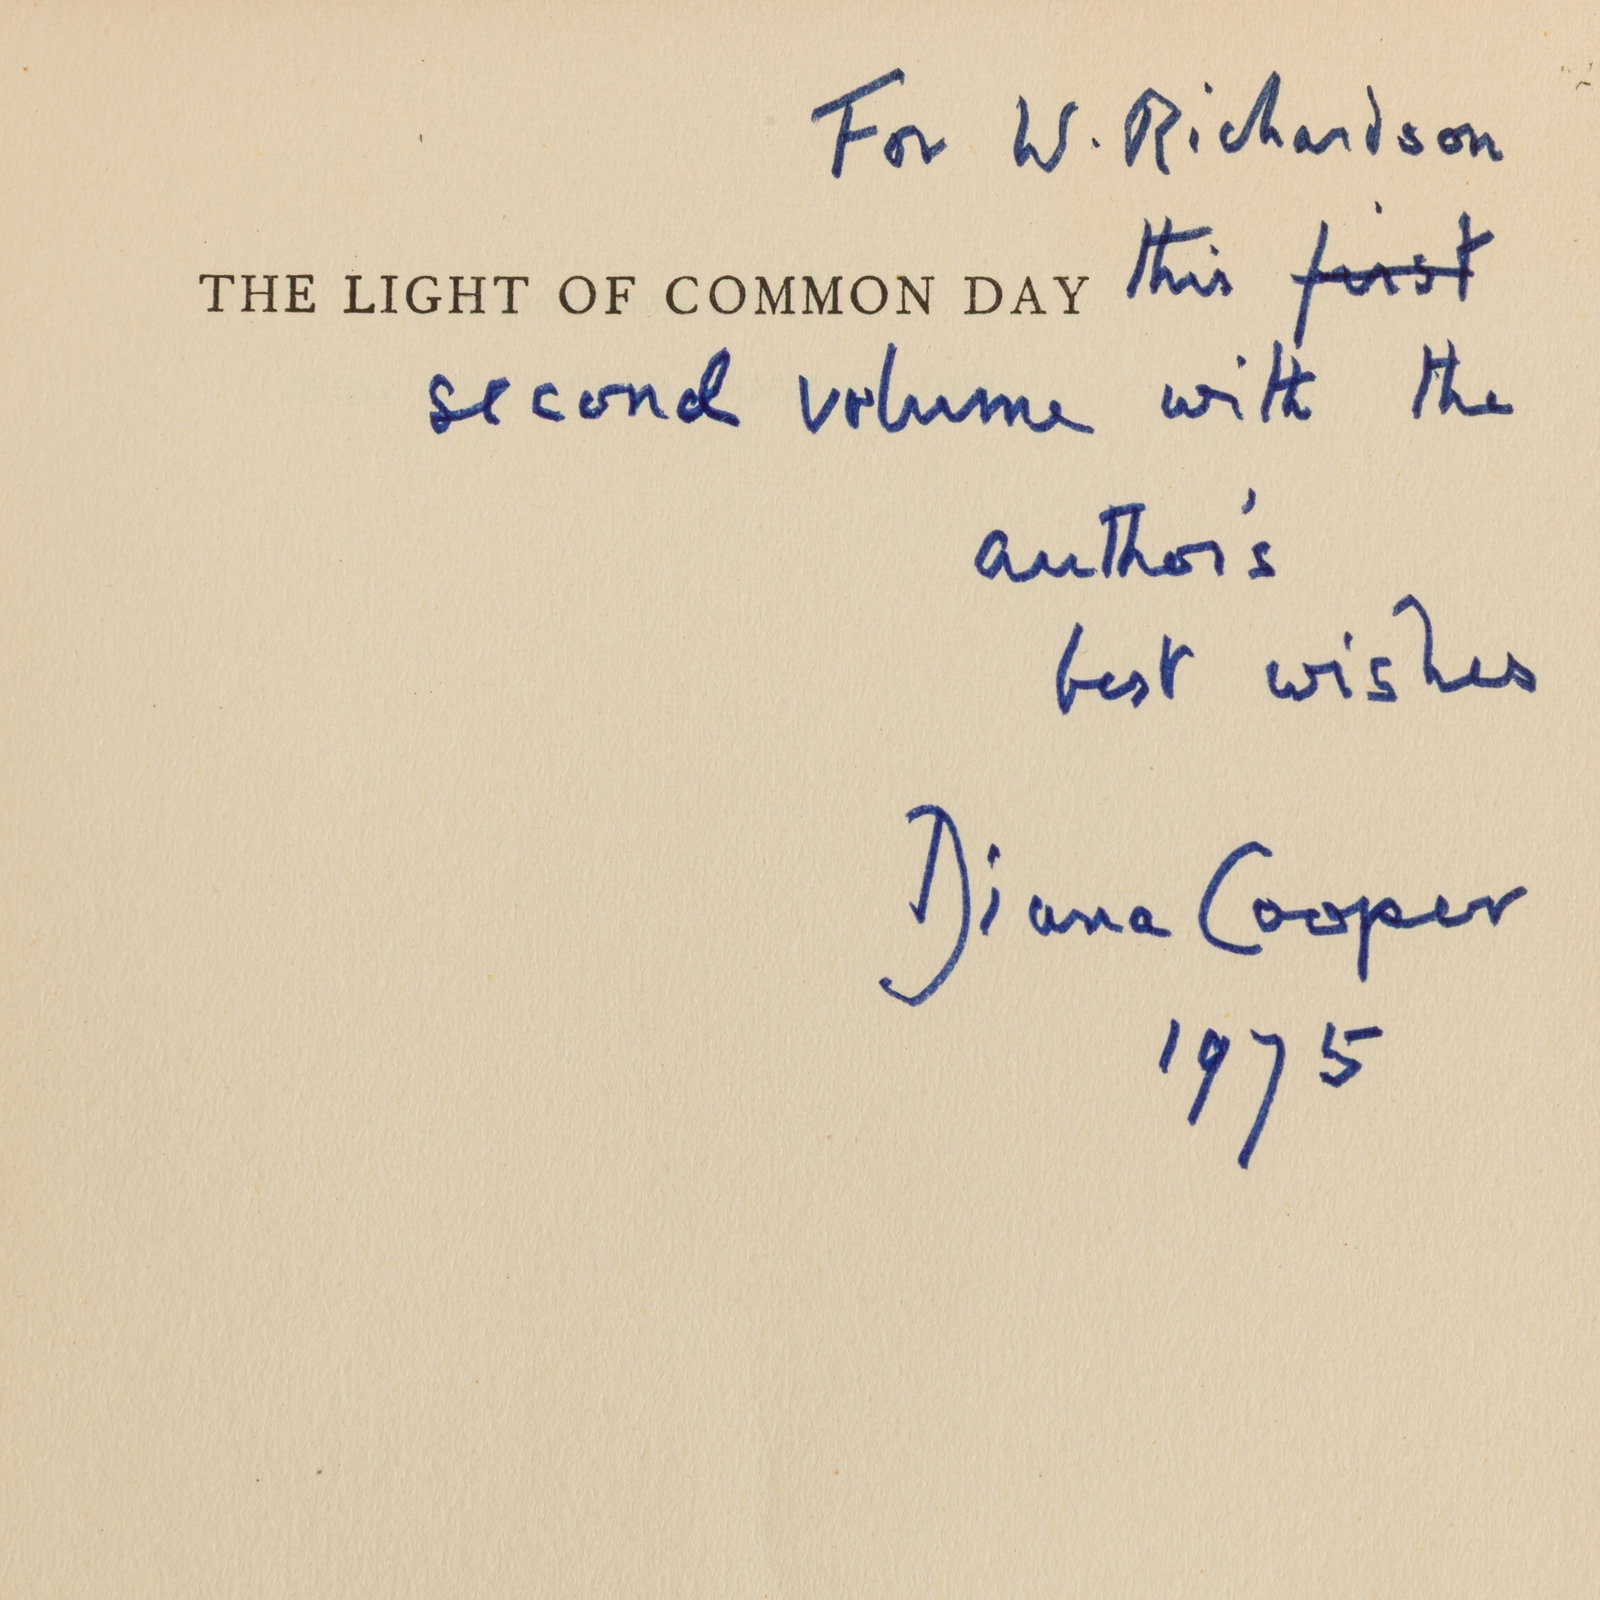 For W. Richardson
this first
THE LIGHT OF COMMON DAY
second volume with the
author's
best wishes
Diana Cooper
1975